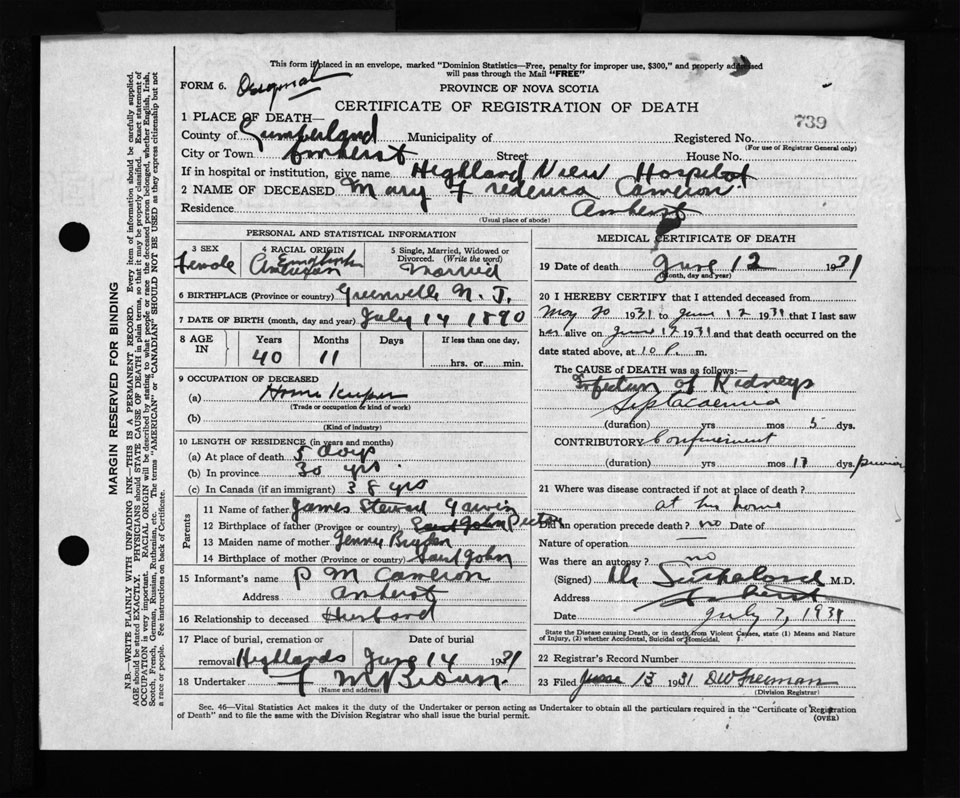 This form if placed in an envelope, marked "Dominion Statistics—Free, penalty for improper use, $300," and properly addressed
will pass through the Mail "FREE"
FORM 6. Original
PROVINCE OF NOVA SCOTIA
CERTIFICATE OF REGISTRATION OF DEATH
739
1 PLACE OF DEATH—
County of Cumberland Municipality of Registered No.
(For use of Registrar General only)
City or Town Amherst Street House No.
If in hospital or institution, give name Highland View Hospital
2 NAME OF DECEASED Mary Frederica Cameron
Residence Amherst
(Usual place of abode)
PERSONAL AND STATISTICAL INFORMATION
3 SEX Female
4 RACIAL ORIGIN
5 Single, Married, Widowed or Divorced. (Write the word) Married
6 BIRTHPLACE (Province or country) Greenville N. J.
7 DATE OF BIRTH (month, day and year) July 14 1890
8 AGE IN Years 40 Months 11 Days If less than one day, hrs. or min.
9 OCCUPATION OF DECEASED
(a) Home Keeper
(Trade or occupation or kind of work)
(b)
(Kind of industry)
10 LENGTH OF RESIDENCE (in years and months)
(a) At place of death 5 days
(b) In province 30 yrs.
(c) In Canada (if an immigrant) 38 yrs
Parents
11 Name of father James Steward
12 Birthplace of father (Province or country) Pictou
13 Maiden name of mother Jenny
14 Birthplace of mother (Province or country) Saint John
15 Informant's name P M Cameron
Address Amherst
16 Relationship to deceased Husband
17 Place of burial, cremation or removal Highlands
Date of burial June 14 1931
18 Undertaker F McBrown.
(Name and address)
MEDICAL CERTIFICATE OF DEATH
19 Date of death June 12 1931
(Month, day and year)
20 I HEREBY CERTIFY that I attended deceased from
May 20 1931 to June 12 1931 that I last saw
her alive on June 12 1931 and that death occurred on the
date stated above, at 10 P. m.
The CAUSE OF DEATH was as follows:—
Infection of Kidneys
Septacaemia
(duration) yrs mos 5 dys.
CONTRIBUTORY Confinement
(duration) yrs mos 17 dys.
21 Where was disease contracted if not at place of death?
at his home
Did an operation precede death? no Date of
Nature of operation —
Was there an autopsy? no
(Signed) M.D.
Address Amherst
Date July 7, 1931
State the Disease causing Death, or in death from Violent Causes, state (1) Means and Nature
of Injury, (2) whether Accidental, Suicidal or Homicidal.
22 Registrar's Record Number
23 Filed June 13 1931
(Division Registrar)
Sec. 46—Vital Statistics Act makes it the duty of the Undertaker or person acting as Undertaker to obtain all the particulars required in the "Certificate of Registration
of Death" and to file the same with the Division Registrar who shall issue the burial permit.
(OVER)
MARGIN RESERVED FOR BINDING
N.B.—WRITE PLAINLY WITH UNFADING INK—THIS IS A PERMANENT RECORD. Every item of information should be carefully supplied.
AGE should be stated EXACTLY. PHYSICIANS should STATE CAUSE OF DEATH in plain terms, so that it may be properly classified. Exact statement of
OCCUPATION is very important. RACIAL ORIGIN will be described by stating to what people or race the deceased person belonged, whether English, Irish,
Scotch, French, German, Russian, Ruthenian, etc. The terms "AMERICAN" or "CANADIAN" SHOULD NOT BE USED as they express citizenship but not
a race or people. Fee instructions on back of Certificate.